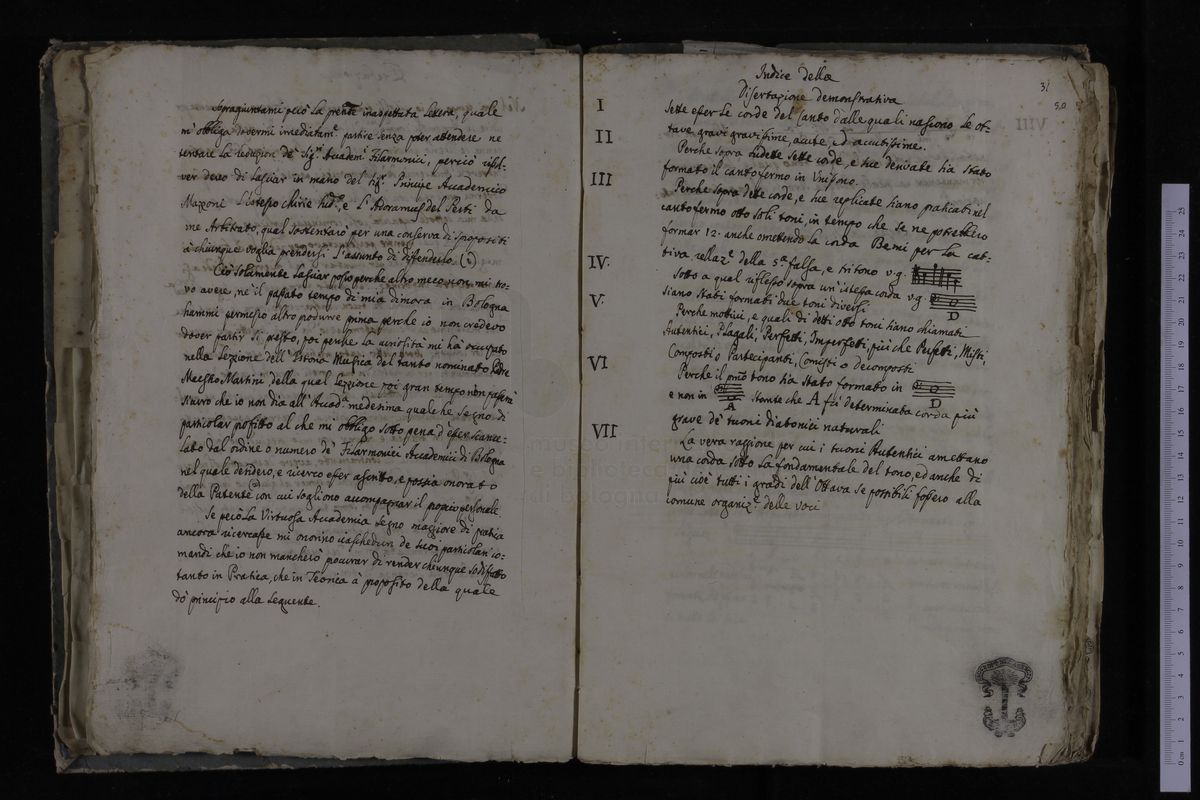 Sopragiuntami però la pre͠nte inaspettata Lettera, quale
m'obbliga dovermi immediatam.te partire senza poter attendere ne
tentare la reduzion de' Sig.ri Academ.ci Filarmonici, perciò
ver devo di lasciar in mano del Sig.r Principe Accademico
Mazzoni l'istesso Chirie sud.o, e l'Adoramus del Perti da
me Arbitrato, qual sostentarò per una conserva di spropositi
à chiunque voglia prendersi l'assunto di diffenderlo (1)
Ciò solamente lasciar posso perche altro meco non mi tro-
vo avere, ne il passato tempo di mia dimora in Bologna
hammi permesso altro produrre prima perche io non credevo
dover partir sì presto, poi perche la curiosità mi hà occupato
nella Lezzione dell'Istoria Musica del tanto nominato Padre
Maestro Martini della qual lezzione poi gran tempo non passerà
sicuro che io non dia all'Accad.a medesima qualche segno di
particolar profitto al che mi obbligo sotto pena d'esser scance-
lato dal'ordine o numero de' Filarmonici Accademici di Bologna
nel quale dessidero, e ricerco esser ascritto, e possia onorato
della Patente con cui sogliono accompagnar il proprio personale
Se però la Virtuosa Accademia segno maggiore di pratica
ancora ricercasse mi onorino ciaschedun de suoi particolari co-
mandi che io non mancherò procurar di render cheunque sodisfatto
tanto in Pratica, che in Teorica à proposito della quale
dò principio alla sequente.
31
50
Indice della
Dissertazione demonstrativa
I
Sette esser le corde del Canto dalle quali nascono le ot-
tave gravi gravissime, acute, ed accutissime.
II
Perche sopra sudette sette corde, e sue derivate hà stato
formato il cantofermo in Unisono.
III
Perche sopra dette corde, e sue replicate siano praticati nel
cantofermo otto soli toni, in tempo che se ne potrebbero
formar 12. anche omettendo la corda Bemi per la cat-
tiva relaz.e della 5.a falsa, e tritono v.g.
IV.
Sotto a qual riflesso sopra un'istessa corda v.g.
D
siano stati formati due toni diversi
V.
Perche mottivi, e quali di detti otto toni siano chiamati
Autentici, Plagali, Perfetti, Imperfetti, più che Perfetti, Misti,
Composti o Partecipanti, Comisti o decomposti
VI
Perche il pm̃o tono hà stato formato in
D
e non in
A
stante che A fà determinata corda più
grave de' tuoni diatonici naturali
VII
La vera raggione per cui i tuoni Autentici amettano
una corda sotto la fondamentale del tono, ed anche di
più cioè tutti i gradi dell'Ottava se possibili fossero alla
comune organiz.e delle voci